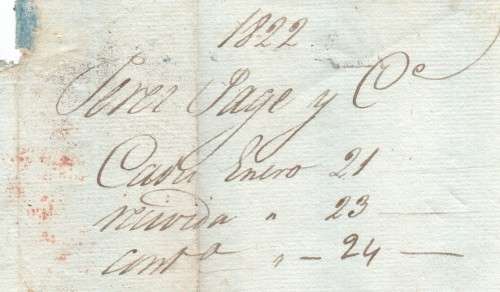 1822
Page y Cᵃ
Cadiz Enero 21
recivida " 23 —
contᵃ " — 24 —